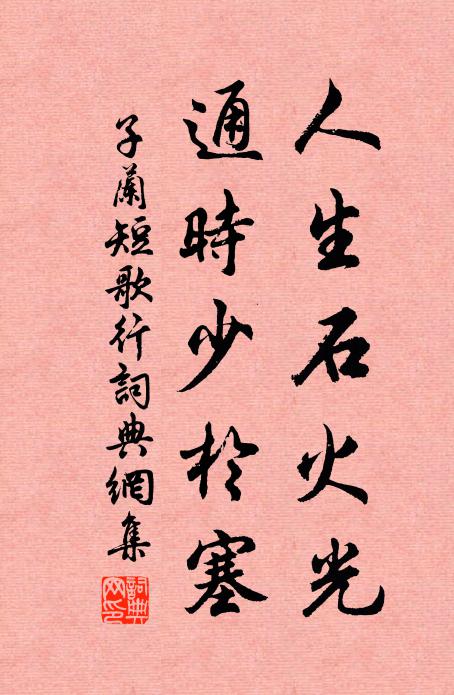 人生石火光
通時少於塞
子蘭短歌行詞典網集
詞典
網印